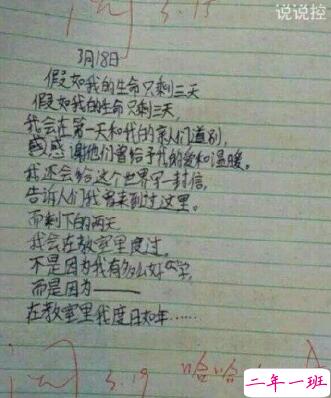 3.15
说说控
3月18日
假如我的生命只剩三天
假如我的生命只剩三天,
我会在第一天和我的亲人们道别,
感谢他们曾给予我的爱和温暖。
我还会给这个世界写一封信,
告诉人们我曾来到过这里。
而剩下的两天
我会在教室里度过。
不是因为我有多么好学,
而是因为——
在教室里我度日如年……
3.19
哈哈
A
二年一班